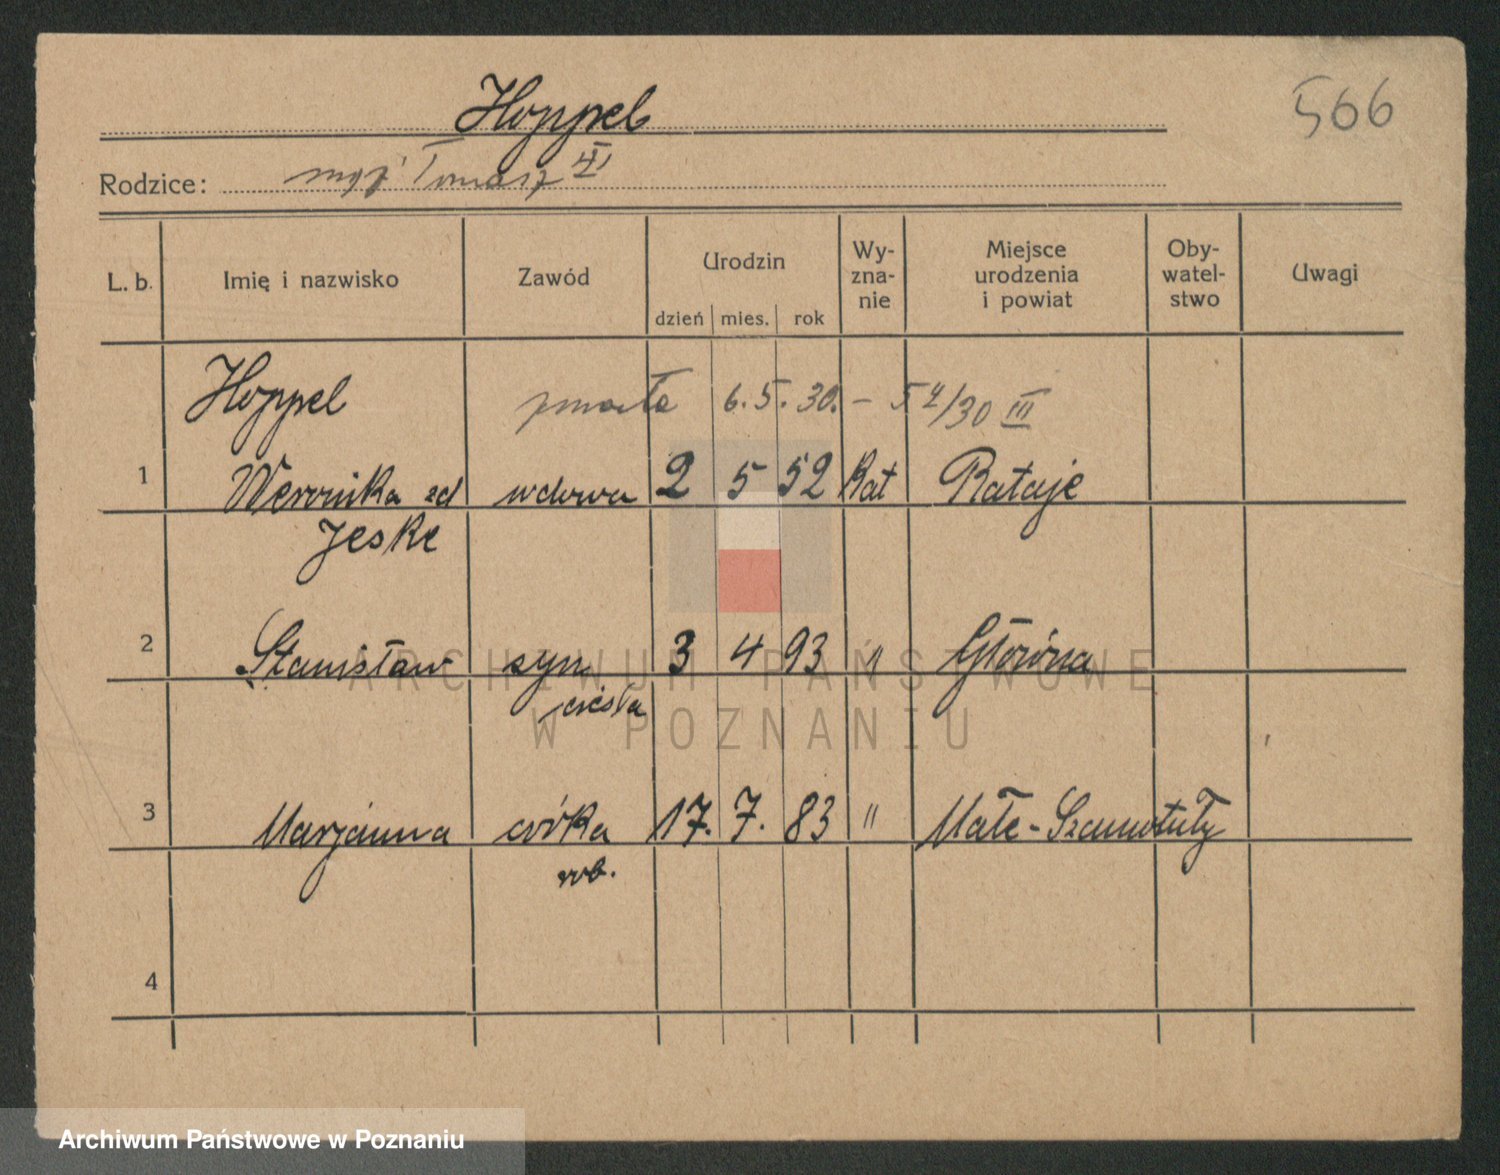 Hoppel
566
Rodzice: mąż Tomasz
L. b. Imię i nazwisko Zawód Urodzin dzień mies. rok Wy-zna-nie Miejsce urodzenia i powiat Oby-watel-stwo Uwagi
Hoppel zmarła 6.5.30. – 54/30 III
1 Weronika zd wdowa 2 5 52 Kat Rataje
Jeske
2 Stanisław syn 3 4 93 " Główna
cieśla
3 Marjanna córka 17. 7. 83 " Małe-Szamotuły
rob.
4
ARCHIWUM PAŃSTWOWE
W POZNANIU
Archiwum Państwowe w Poznaniu